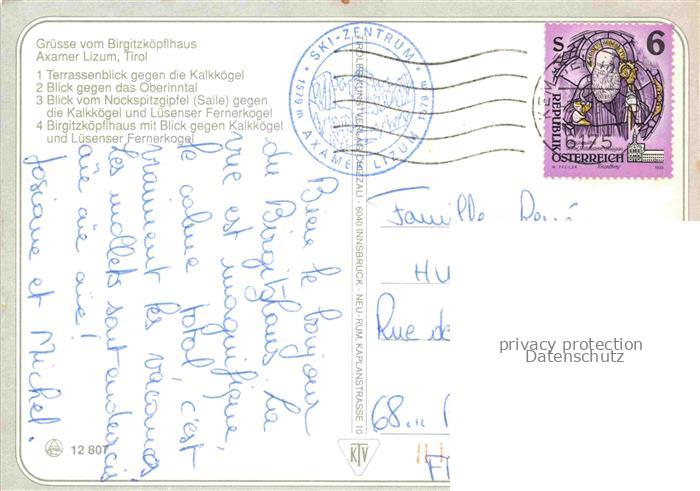 Grüsse vom Birgitzköpflhaus
Axamer Lizum, Tirol
1 Terrassenblick gegen die Kalkkögel
2 Blick gegen das Oberinntal
3 Blick vom Nockspitzgipfel (Saile) gegen
die Kalkkögel und Lüsenser Fernerkogel
4 Birgitzköpflhaus mit Blick gegen Kalkkögel
und Lüsenser Fernerkogel
SKI-ZENTRUM
1579 m
AXAMER LIZUM
S 6
REPUBLIK
ÖSTERREICH
6175
Bien le bonjour
du Birgitzhaus. La
vue est magnifique
le calme total c'est
vraiment les vacances
les mollets sont
aïe aïe aïe!
Josiane et Michel.
TIROLER KUNSTVERLAG CHIZZALI - 6040 INNSBRUCK - NEU-RUM, KAPLANSTRASSE 10
Famille
Rue de
68...
privacy protection
Datenschutz
12 807
KTV